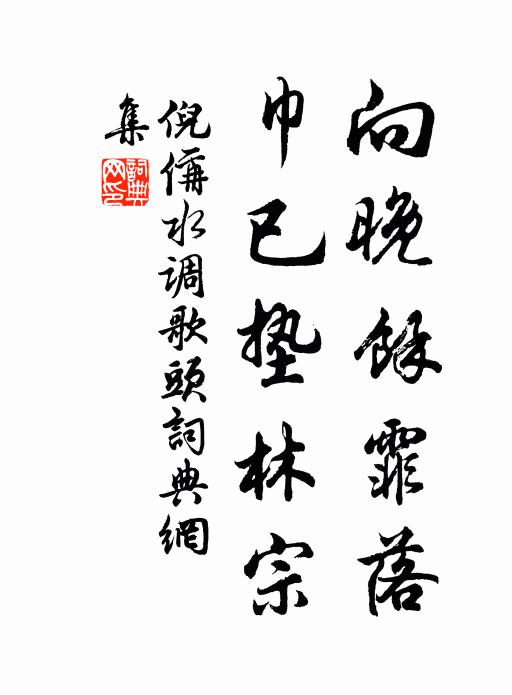 向晚餘霏落
巾已垫林宗
倪偁水调歌頭詞典網
集
詞典網印